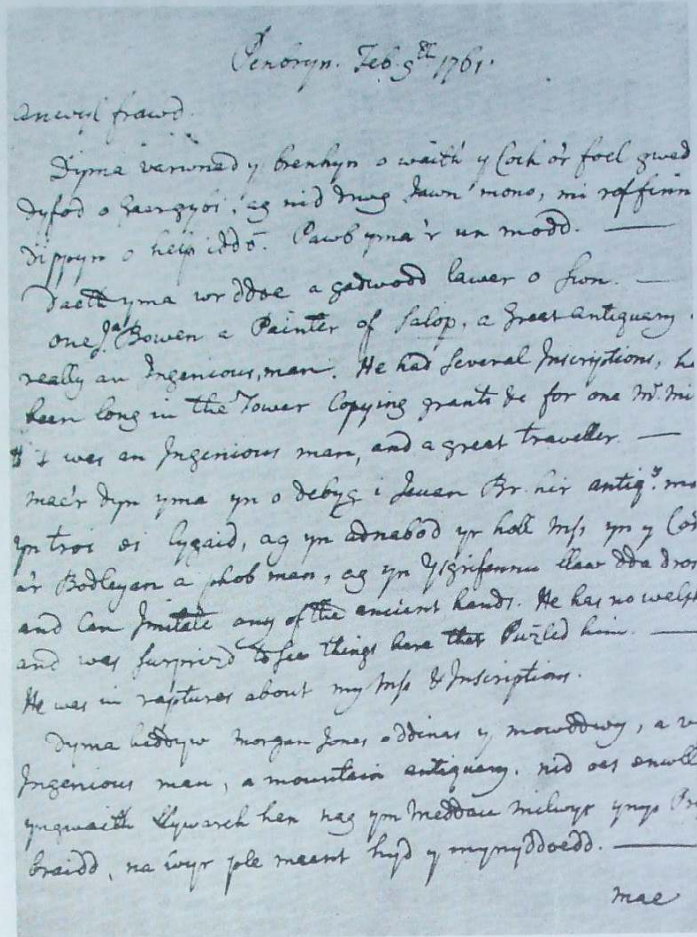 Penbryn. Feb. 9th 1761.
Anwyl frawd.
Dyma varwnad y brenhyn o waith y Coch o'r foel gwed
dyfod o Gaergybi, ag nid drwg Jawn mono, mi roffinn
dippyn o help iddo. Pawb yma'r un modd. —
Daeth yma wr ddoe a gadwodd lawer o swn. —
one Jas Bowen a Painter of Salop, a Great antiquary.
really an Ingenious, man. He had Several Inscriptions, h
been long in the Tower Copying grants &c for one Mr. Mi
I was an Ingenious man, and a great traveller —
Mae'r dyn yma yn o debyg i Jeuan Br. hir antiq.
yn troi ei lygaid, ag yn adnabod yr holl Mss yn y Co
a'r Bodleyan a phob man, ag yn Ysgrifennu llaw dda dros
and Can Jmitate any of the ancient hands. He has no welsh
and was Surprizd to See things here that Puzled him. —
He was in raptures about my Mss & Inscriptions.
Dyma heddyw Morgan Jones o ddinas y mowddwy, a v
Ingenious man, a mountain antiquary. nid oes enwll
yngwaith Llywarch hen nag ym Meddau milwyr ynys Pr
braidd, na wyr ple maent hyd y mynyddoedd. —
Mae